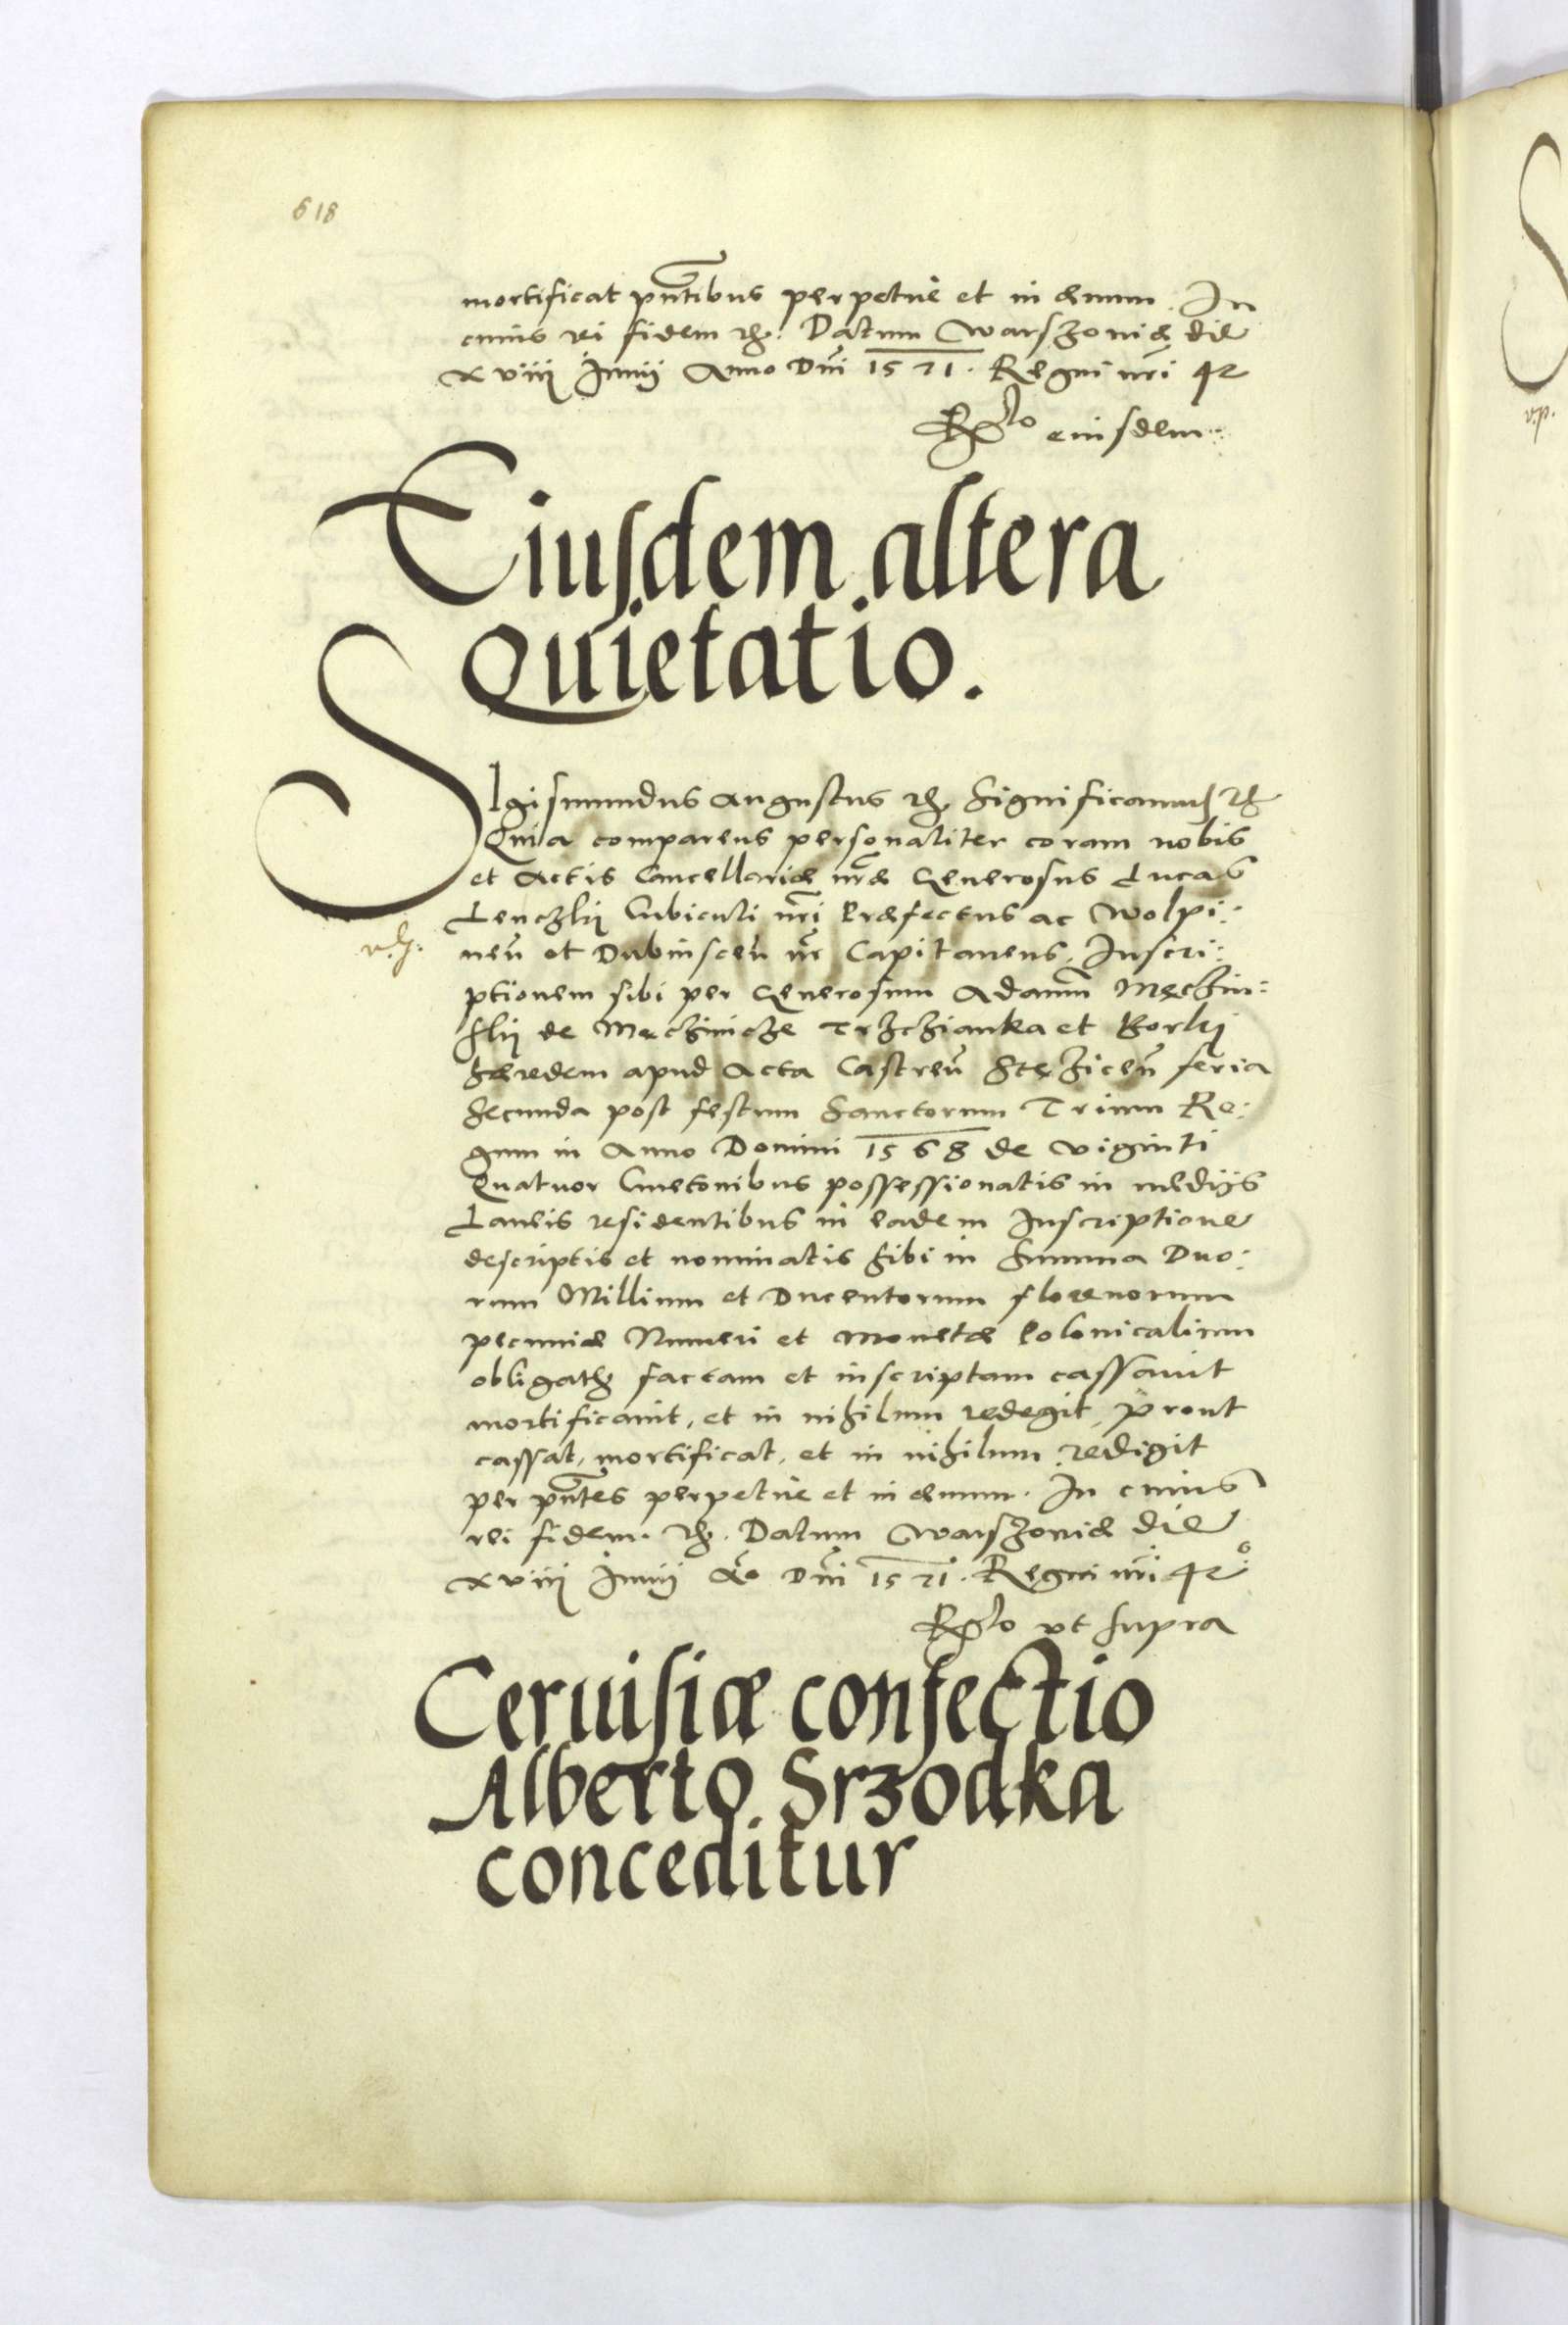 618
mortificat pntibus perpetue et in aeuum. In
cuius rei fidem etc. Datum Warszouiae die
xviiij Junij Anno Dni 1571. Regni nri 42
Relo eiusdem.
Eiusdem altera
Quietatio.
SIgismundus Augustus etc. Significamus etc.
Quia comparens personaliter coram nobis
et Actis Cancellariae nrae Generosus Lucas
Lenczkij Cubiculi nri Praefectus ac Wolpi:
nen et Dubinscen nr Capitaneus, Inscri:
ptionem sibi per Generosum Adamum Męczin:
skij de Męczinicze Trzczianka et Gorki
haeredem apud Acta Castren Stęzicen feria
secunda post festum Sanctorum Trium Re:
gum in Anno Domini 1568 de viginti
Quatuor Cmetonibus possessionatis in medijs
Laneis residentibus in eadem Inscriptione
descriptis et nominatis sibi in summa Duo:
rum Millium et Ducentorum florenorum
pecuniae Numeri et Monetae Polonicalium
obligatis factam et inscriptam cassauit
mortificauit, et in nihilum redegit, prout
cassat, mortificat, et in nihilum redigit
per pntes perpetue et in aeuum. In cuius
rei fidem. etc. Datum Warszouiae die
xviiij Junij Ao Dni 1571. Regni nri 42o
Relo vt supra
Ceruisiae confectio
Alberto Srzodka
conceditur
v.p.